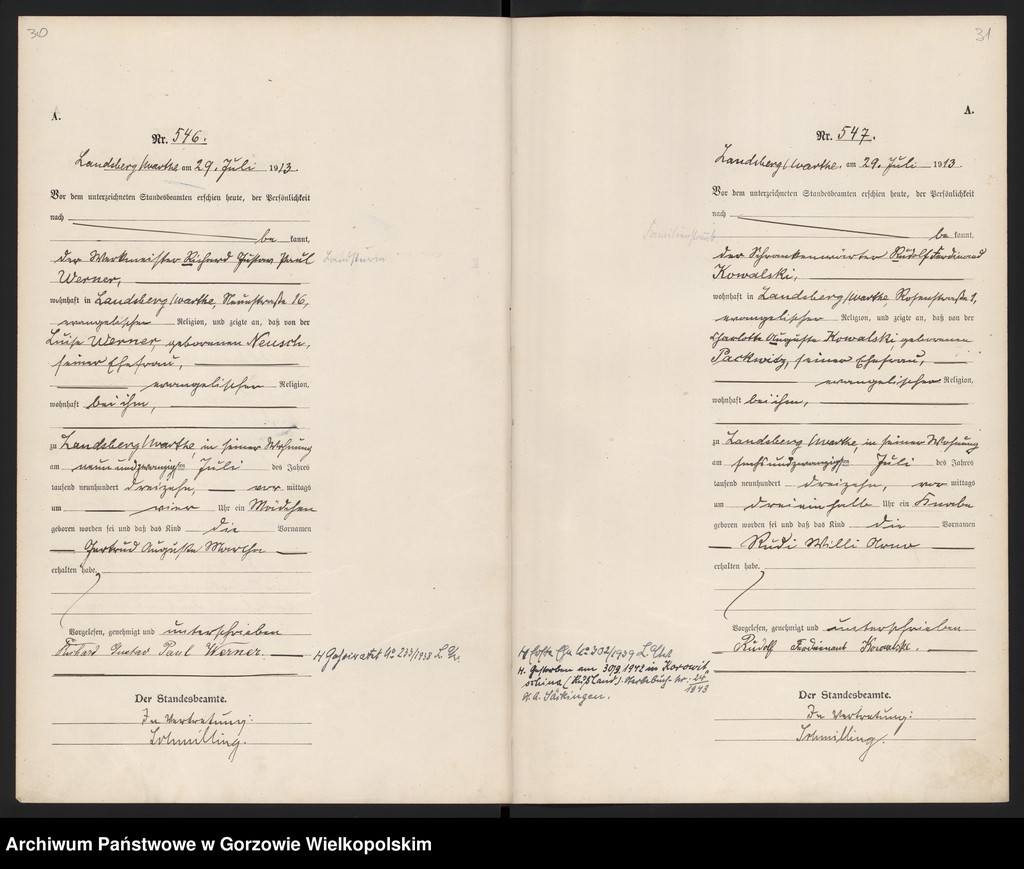 30
A.
Nr. 546.
Landsberg/Warthe am 29. Juli 1913.
Vor dem unterzeichneten Standesbeamten erschien heute, der Persönlichkeit
nach
be kannt,
der Werkmeister Richard Gustav Paul
Werner,
wohnhaft in Landsberg/Warthe,  16,
evangelischer Religion, und zeigte an, daß von der
Luise Werner, geborenen Neusch,
seiner Ehefrau,
evangelischer Religion,
wohnhaft bei ihm,
zu Landsberg/Warthe, in seiner Wohnung
am neunundzwanzigsten Juli des Jahres
tausend neunhundert dreizehn, vor mittags
um vier Uhr ein Mädchen
geboren worden sei und daß das Kind die Vornamen
Gertrud Auguste Martha
erhalten habe.
Vorgelesen, genehmigt und unterschrieben
Richard Gustav Paul Werner.
H Geheiratet No 233/1938
Der Standesbeamte.
In Vertretung:
Schmilling.
31
A.
Nr. 547.
Landsberg/Warthe. am 29. Juli 1913.
Vor dem unterzeichneten Standesbeamten erschien heute, der Persönlichkeit
nach
be kannt,
der Schrankenwärter Rudolf Ferdinand
Kowalski,
wohnhaft in Landsberg/Warthe, Rosenstraße 1,
evangelischer Religion, und zeigte an, daß von der
Charlotte Auguste Kowalski, geborenen
Packwitz, seiner Ehefrau,
evangelischer Religion,
wohnhaft bei ihm,
zu Landsberg/Warthe, in seiner Wohnung
am sechsundzwanzigsten Juli des Jahres
tausend neunhundert dreizehn, vor mittags
um dreieinhalb Uhr ein Knabe
geboren worden sei und daß das Kind die Vornamen
Rudi Willi Arno
erhalten habe.
Vorgelesen, genehmigt und unterschrieben
Rudolf Ferdinant Kowalski.
No 302/1939
H. Gestorben am 30/9. 1942 in Korowit
schina (Rußland). Sterbebuch Nr: 24/1943
St. A. Säckingen.
Der Standesbeamte.
In Vertretung:
Schmilling.
Archiwum Państwowe w Gorzowie Wielkopolskim